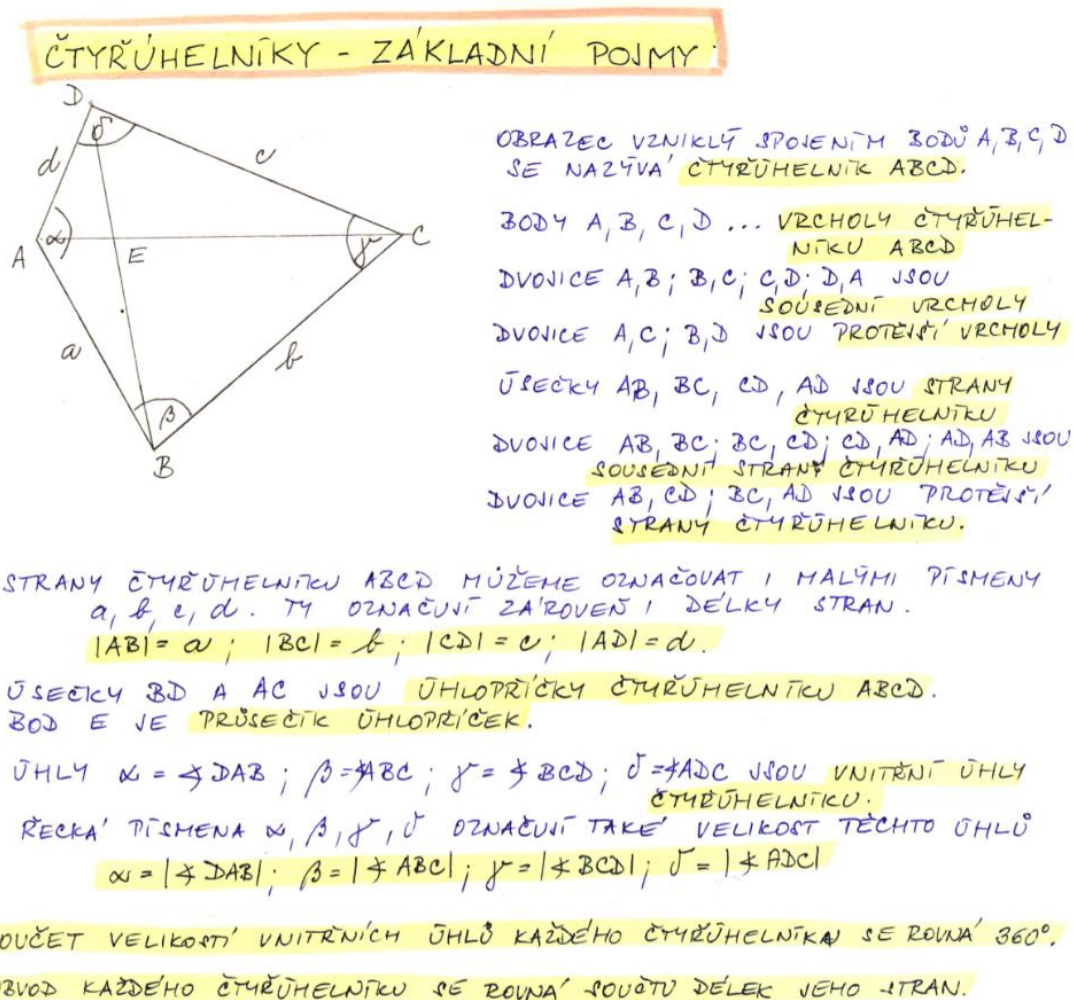 ČTYŘÚHELNÍKY - ZÁKLADNÍ POJMY
D
δ
d
c
A
α
E
γ
C
a
b
β
B
OBRAZEC VZNIKLÝ SPOJENÍM BODŮ A, B, C, D
SE NAZÝVÁ ČTYŘÚHELNÍK ABCD.
BODY A, B, C, D ... VRCHOLY ČTYŘÚHEL-
NÍKU ABCD
DVOJICE A,B; B,C; C,D; D,A JSOU
SOUSEDNÍ VRCHOLY
DVOJICE A,C; B,D JSOU PROTĚJŠÍ VRCHOLY
ÚSEČKY AB, BC, CD, AD JSOU STRANY
ČTYŘÚHELNÍKU
DVOJICE AB, BC; BC, CD; CD, AD; AD, AB JSOU
SOUSEDNÍ STRANY ČTYŘÚHELNÍKU
DVOJICE AB, CD; BC, AD JSOU PROTĚJŠÍ
STRANY ČTYŘÚHELNÍKU.
STRANY ČTYŘÚHELNÍKU ABCD MŮŽEME OZNAČOVAT I MALÝMI PÍSMENY
a, b, c, d. TY OZNAČUJÍ ZÁROVEŇ I DÉLKY STRAN.
|AB| = a; |BC| = b; |CD| = c; |AD| = d.
ÚSEČKY BD A AC JSOU ÚHLOPŘÍČKY ČTYŘÚHELNÍKU ABCD.
BOD E JE PRŮSEČÍK ÚHLOPŘÍČEK.
ÚHLY α = ∢DAB; β = ∢ABC; γ = ∢BCD; δ = ∢ADC JSOU VNITŘNÍ ÚHLY
ČTYŘÚHELNÍKU.
ŘECKÁ PÍSMENA α, β, γ, δ OZNAČUJÍ TAKÉ VELIKOST TĚCHTO ÚHLŮ
α = |∢DAB|; β = |∢ABC|; γ = |∢BCD|; δ = |∢ADC|
OUČET VELIKOSTÍ VNITŘNÍCH ÚHLŮ KAŽDÉHO ČTYŘÚHELNÍKA SE ROVNÁ 360°.
BVOD KAŽDÉHO ČTYŘÚHELNÍKU SE ROVNÁ SOUČTU DÉLEK JEHO STRAN.